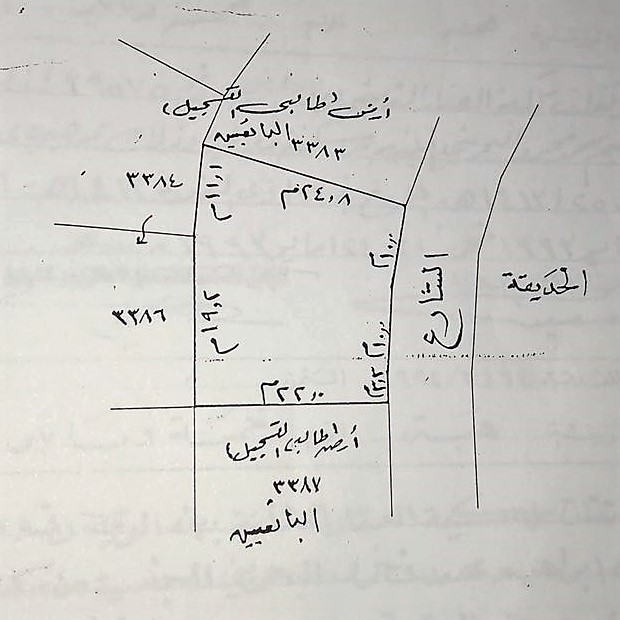 أرض طالبي التسجيل
البائعين
٣٣٨٣
٣٣٨٤
١١,١ م
٢٤,٨ م
١٠,٠ م
الشارع
الحديقة
٣٣٨٦
١٩,٢ م
١٠,٠ م
٢٢,٠ م
أرض طالبي التسجيل
٣٣٨٧
البائعين